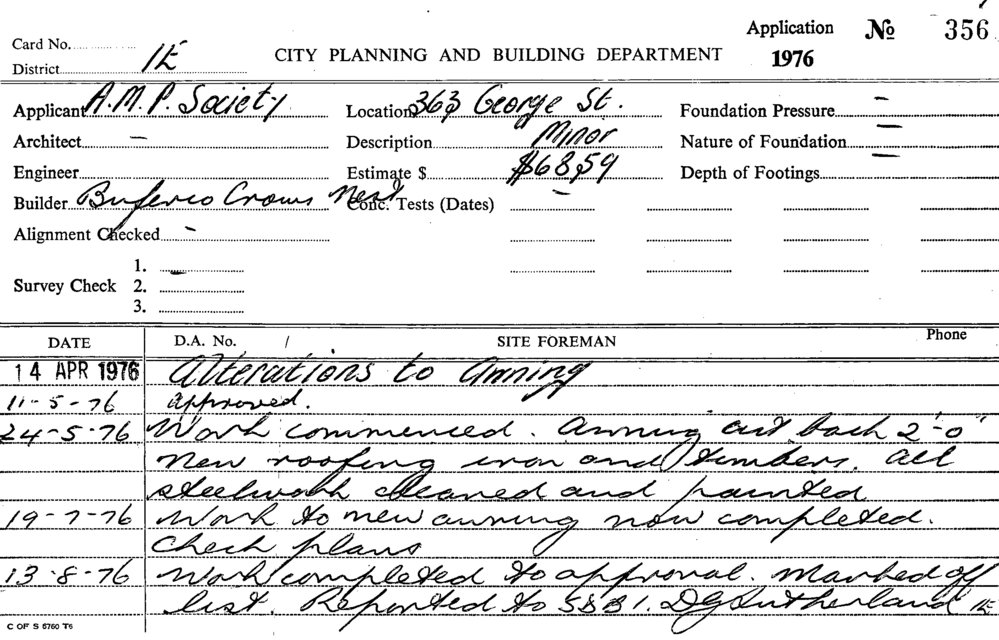 Application № 356
Card No.
CITY PLANNING AND BUILDING DEPARTMENT 1976
District 1E
Applicant A.M.P. Society Location 363 George St. Foundation Pressure –
Architect – Description Minor Nature of Foundation –
Engineer Estimate $ $6859 Depth of Footings –
Builder Crows Nest Conc. Tests (Dates) –
Alignment Checked –
1. –
Survey Check 2.
3.
DATE D.A. No. / SITE FOREMAN Phone
14 APR 1976 Alterations to Awning
11-5-76 approved.
24-5-76 Work commenced. Awning cut back 2'-0"
New roofing iron and timbers. all
steelwork cleaned and painted
19-7-76 Work to new awning now completed.
Check plans
13-8-76 Work completed to approval. Marked off
list. Reported to SBB1. DG Sutherland 1E
C OF S 5760 T6